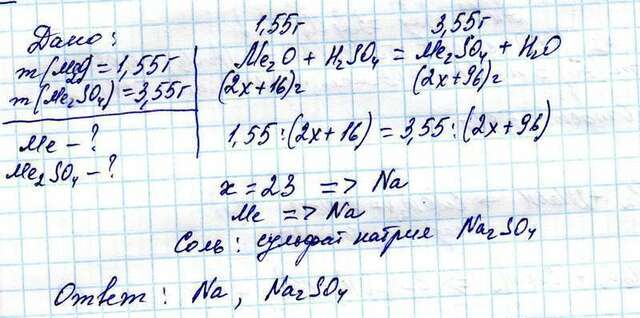 Дано:
m(Me2O) = 1,55г
m(Me2SO4) = 3,55г
Me - ?
Me2SO4 - ?
1,55г 3,55г
Me2O + H2SO4 = Me2SO4 + H2O
(2x+16)г (2x+96)г
1,55:(2x+16) = 3,55:(2x+96)
x = 23 => Na
Me => Na
Соль: сульфат натрия Na2SO4
Ответ: Na, Na2SO4